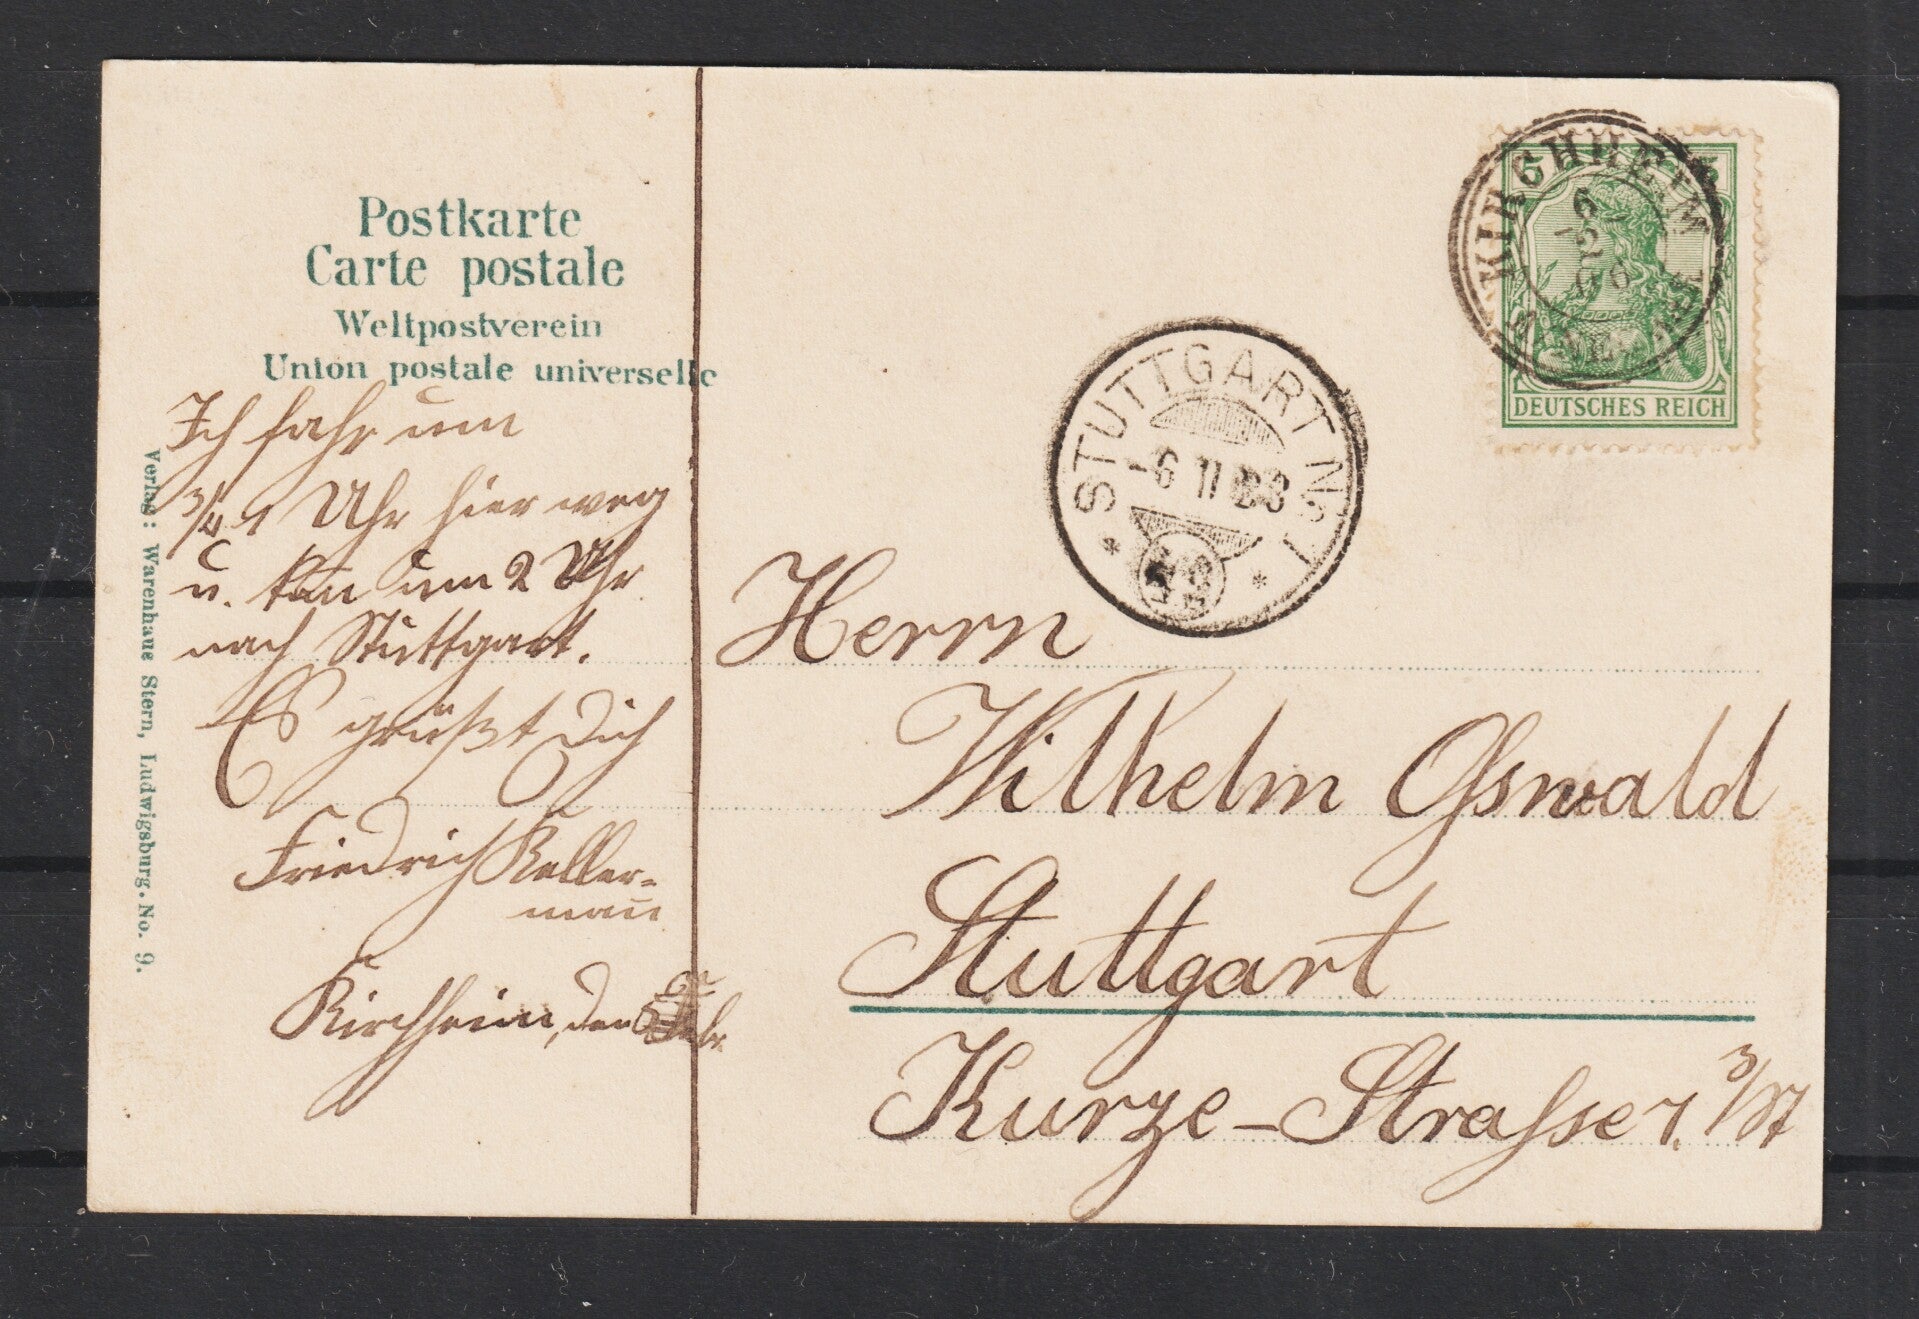 Postkarte
Carte postale
Weltpostverein
Union postale universelle
Ich fahr um
3/4 1 Uhr hier weg
u. kom um 2 Uhr
nach Stuttgart.
Es grüßt Dich
Friedrich Keller-
mañ
Kirchheim, den Febr.
Verlag: Warenhaus Stern, Ludwigsburg. No. 9.
KIRCHHEIM
DEUTSCHES REICH
STUTTGART Nº 1
-6 11
Herrn
Wilhelm Osswald
Stuttgart
Kurze-Strasse